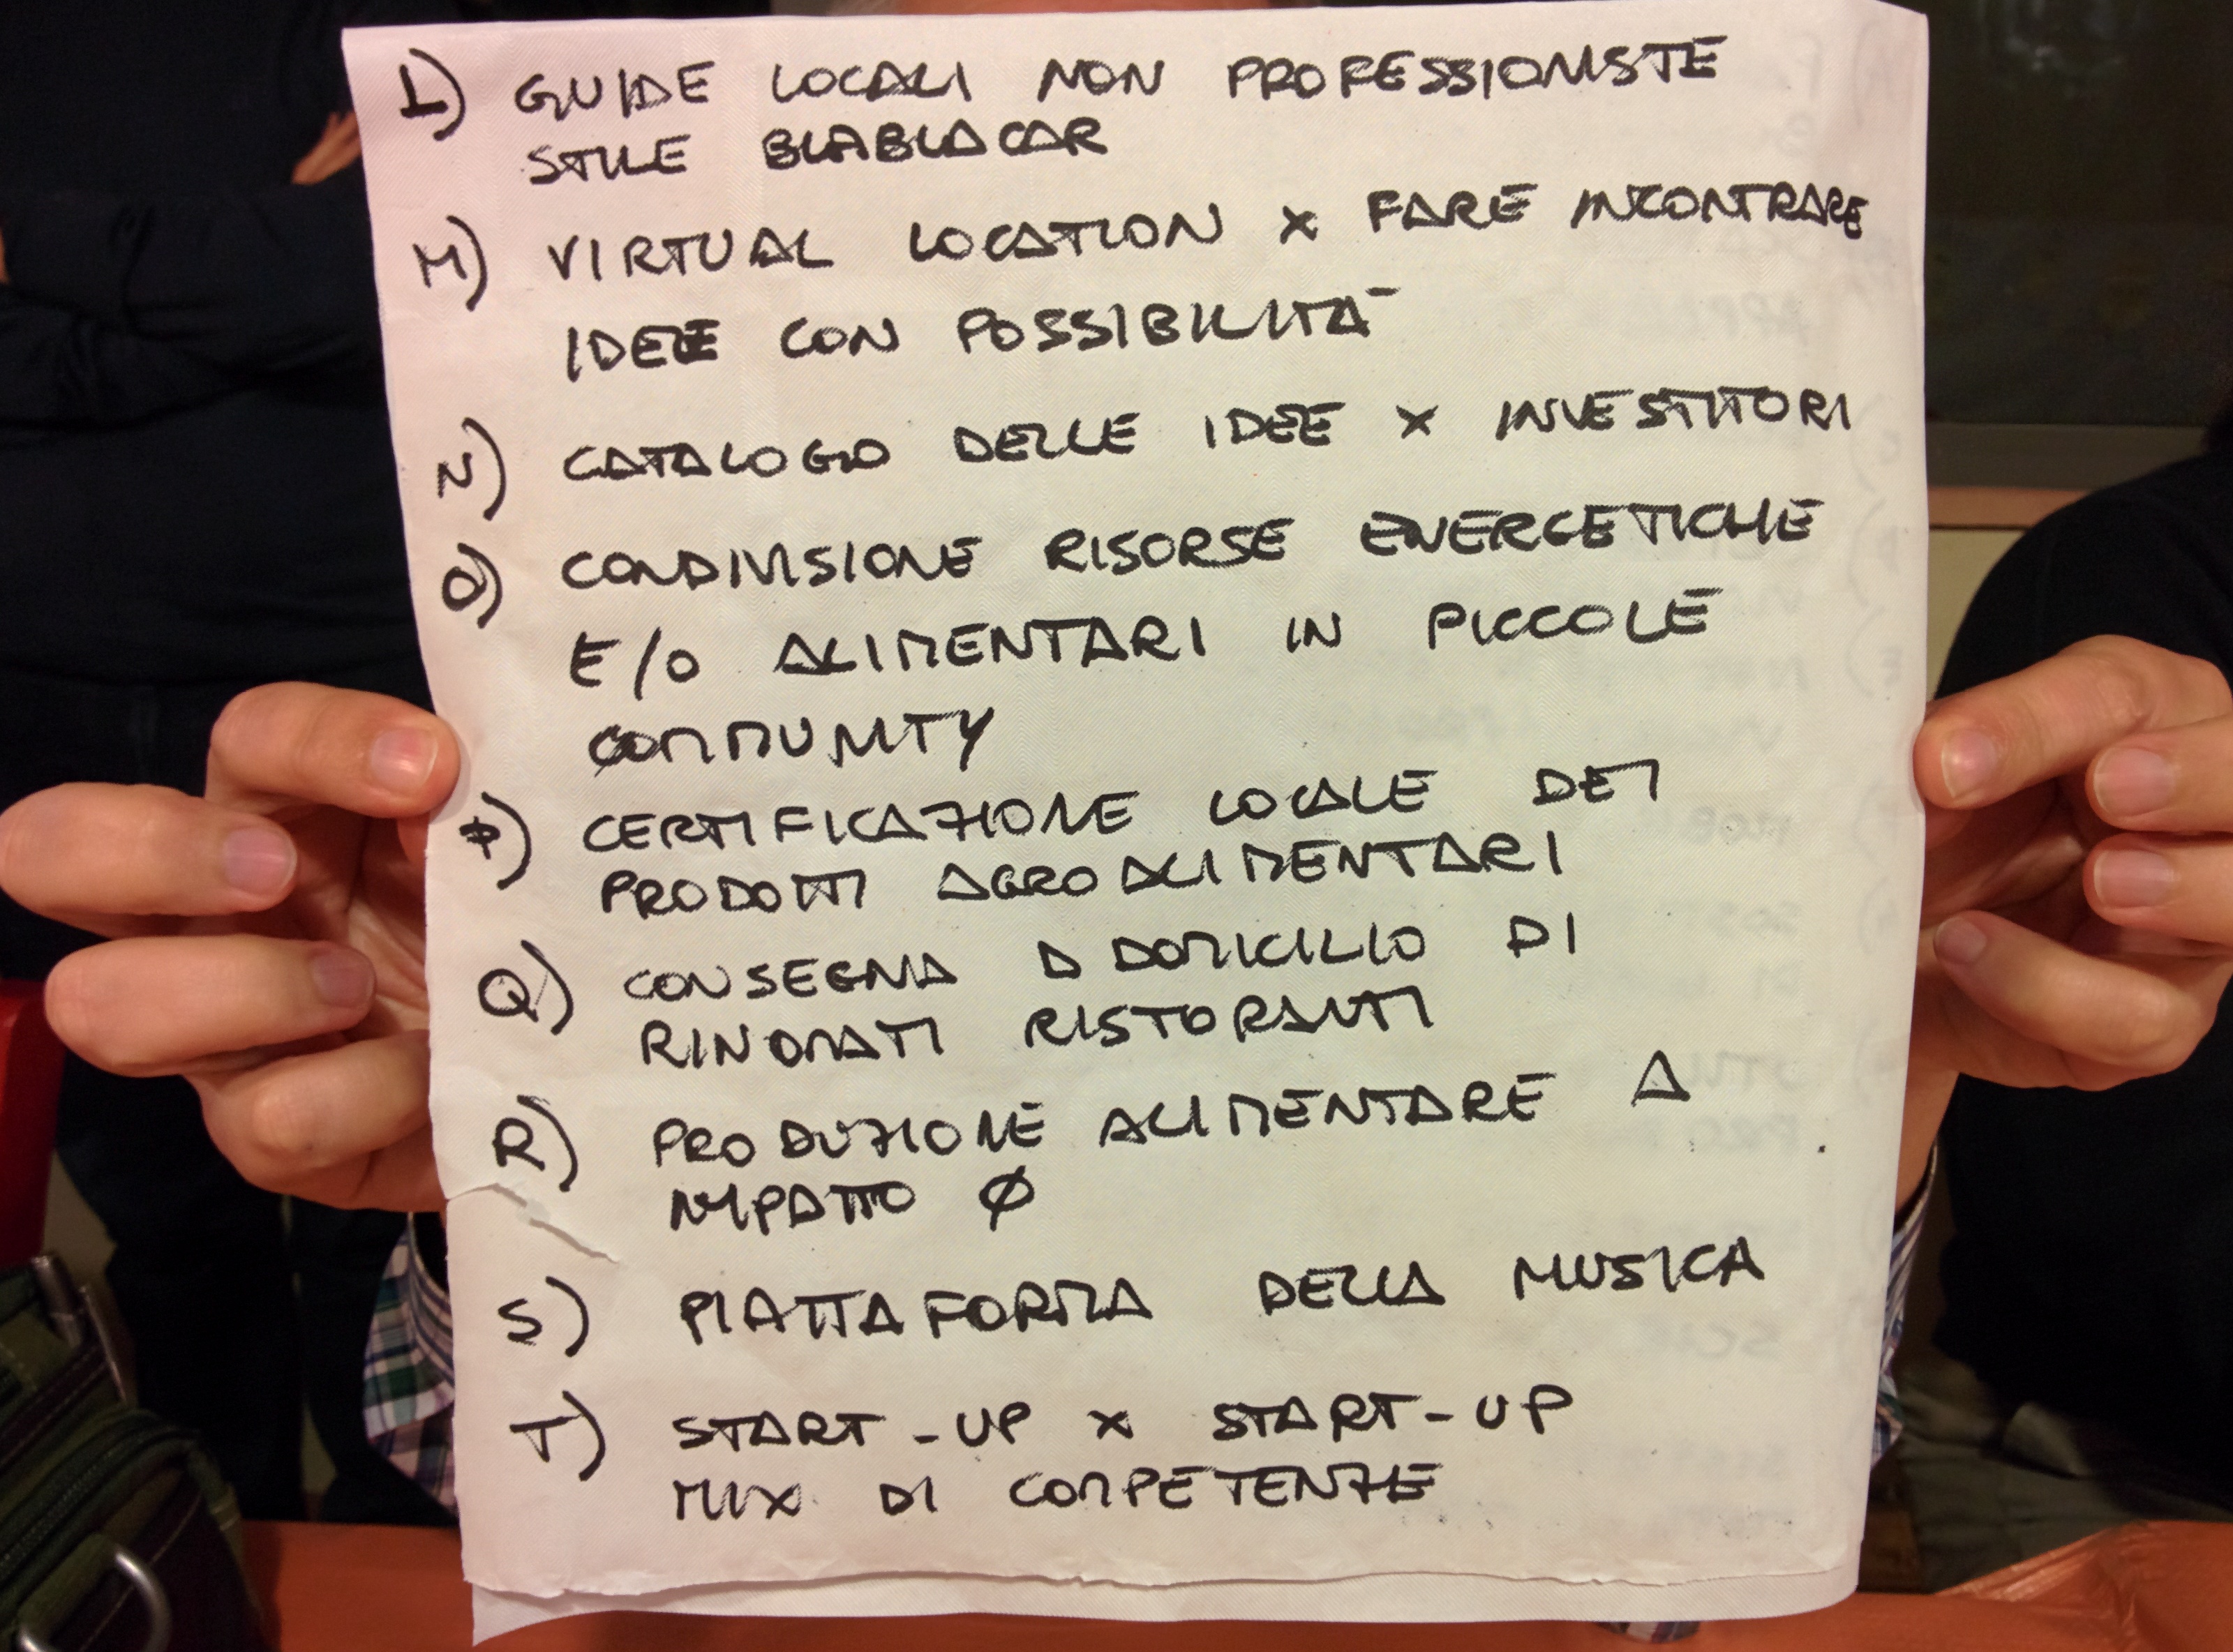 L) GUIDE LOCALI NON PROFESSIONISTE
STILE BLABLACAR
M) VIRTUAL LOCATION X FARE INCONTRARE
IDEE CON POSSIBILITÀ
N) CATALOGO DELLE IDEE X INVESTITORI
O) CONDIVISIONE RISORSE ENERGETICHE
E/O ALIMENTARI IN PICCOLE
COMMUNITY
P) CERTIFICAZIONE LOCALE DEI
PRODOTTI AGROALIMENTARI
Q) CONSEGNA A DOMICILIO DI
RINOMATI RISTORANTI
R) PRODUZIONE ALIMENTARE A
IMPATTO Ø
S) PIATTAFORMA DELLA MUSICA
T) START-UP X START-UP
MIX DI COMPETENZE